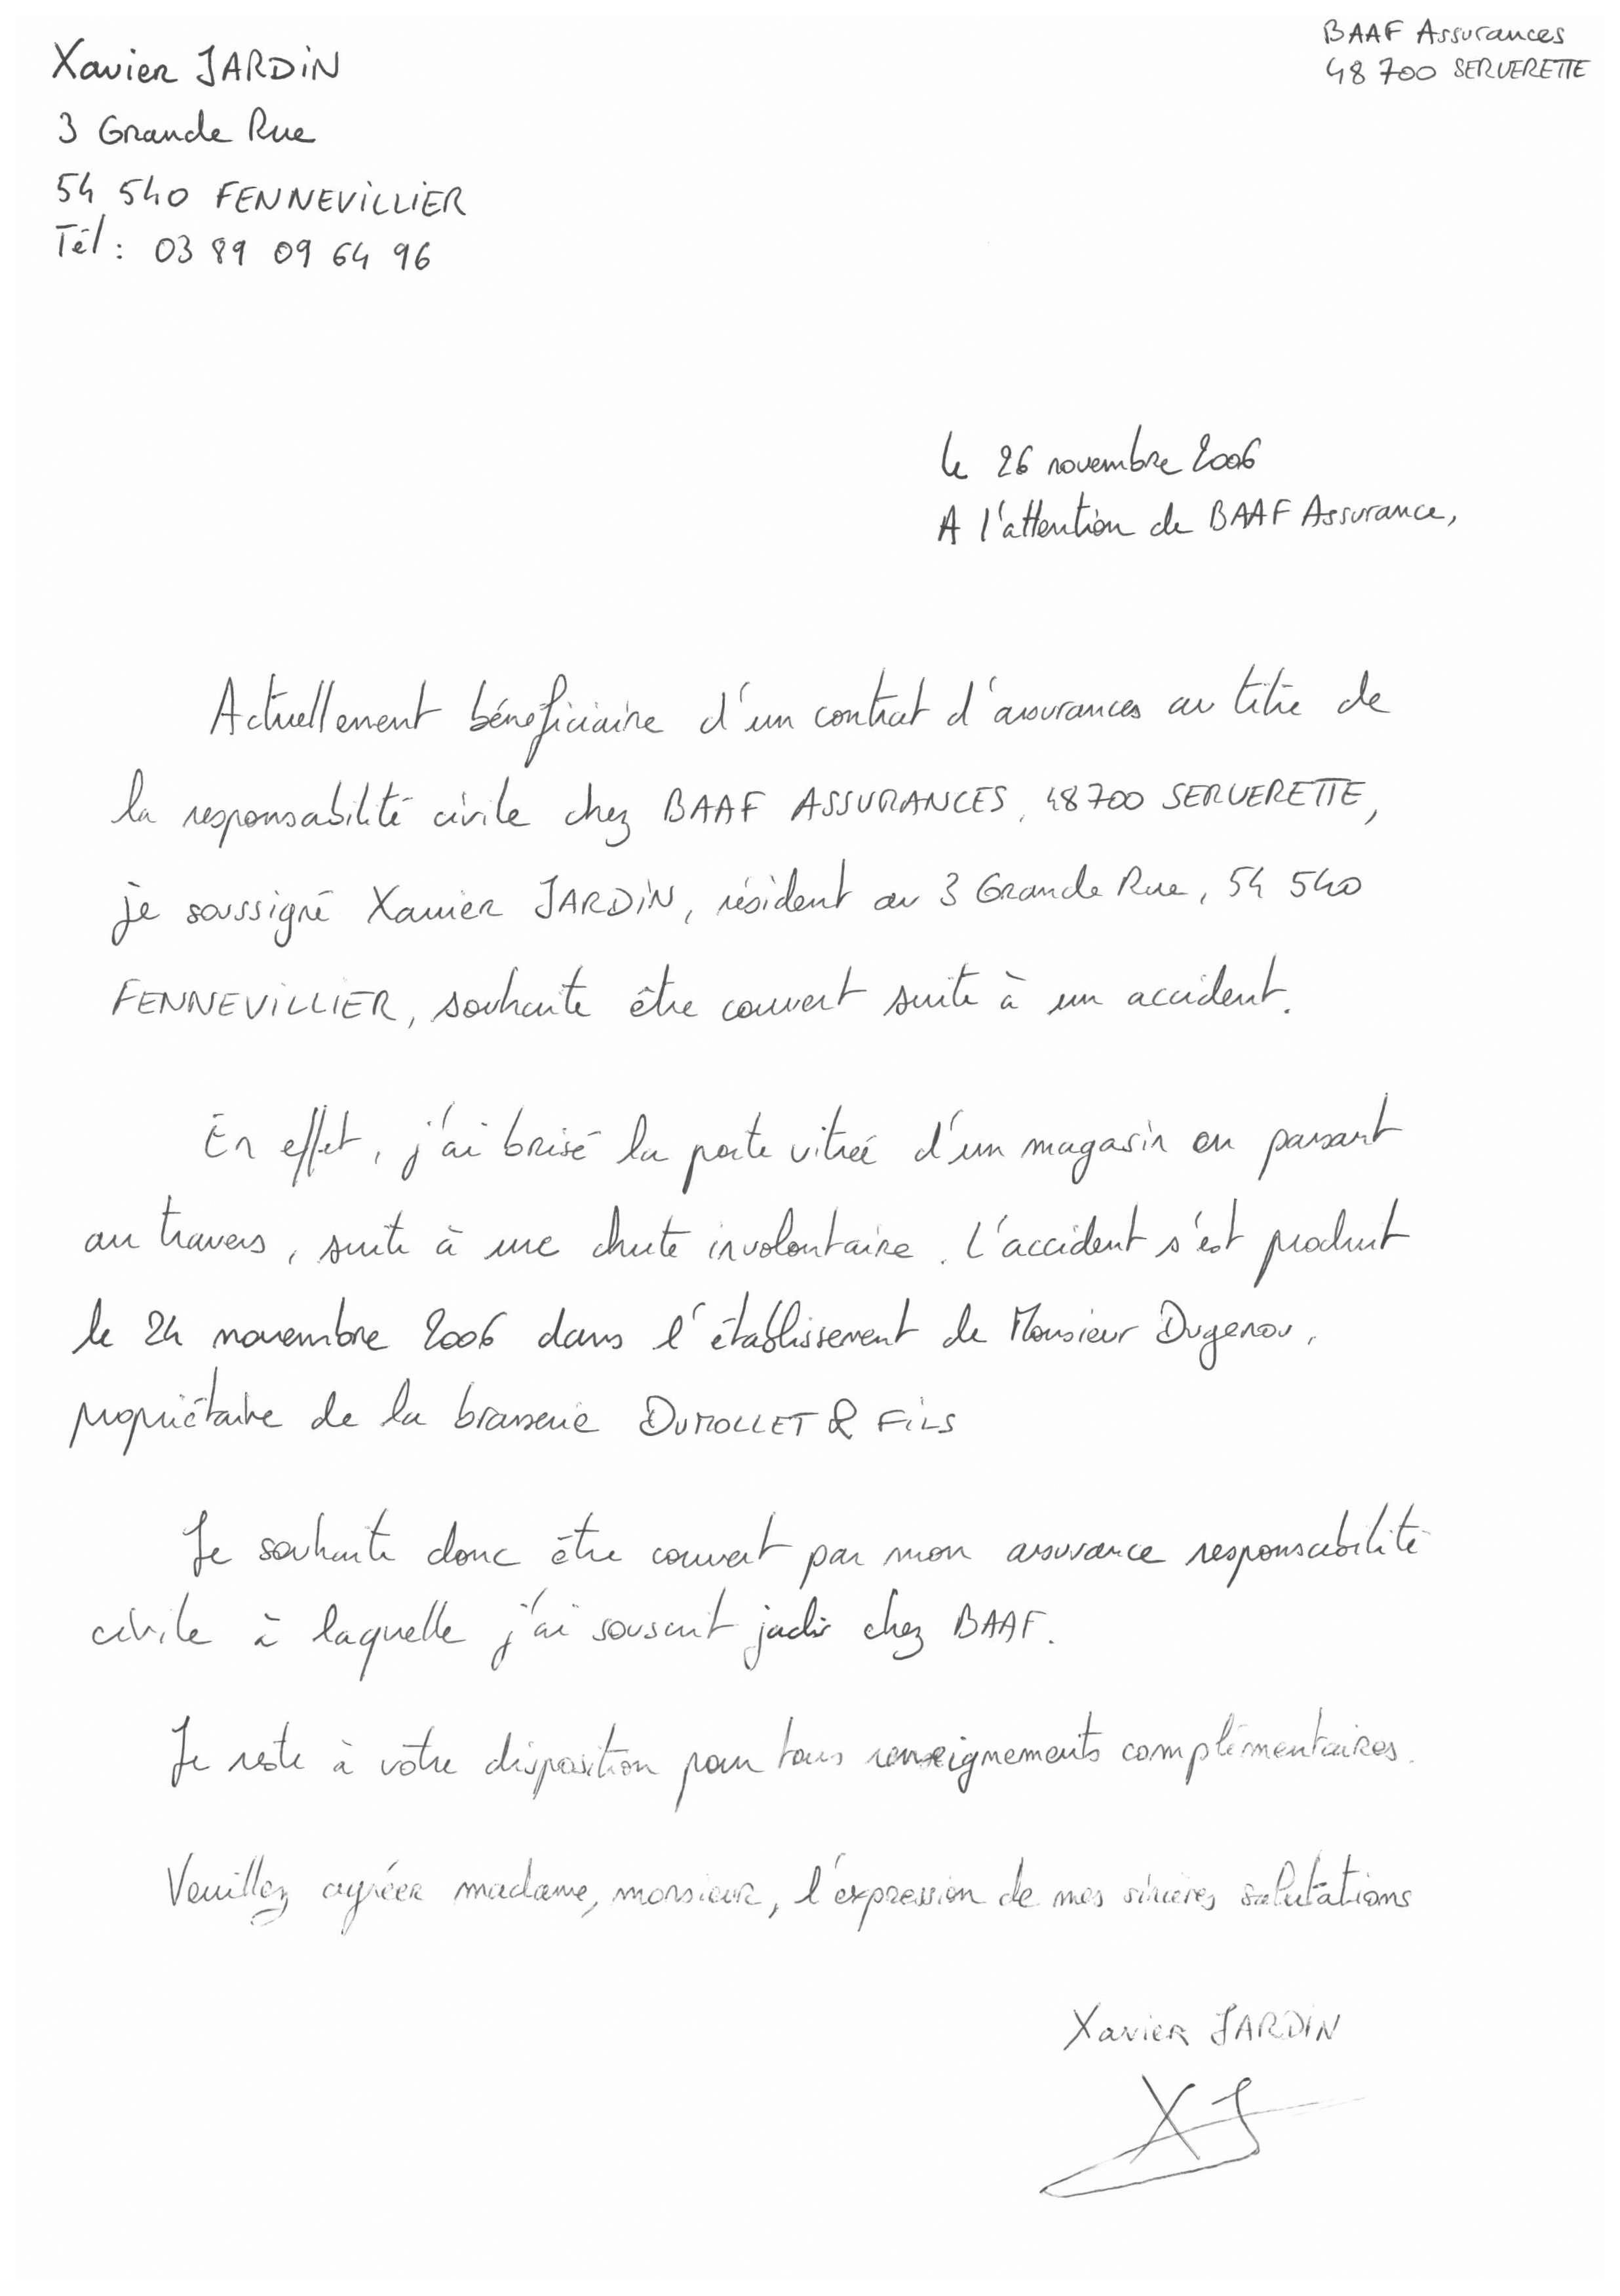 Xavier JARDIN
3 Grande Rue
54 540 FENNEVILLIER
Tél : 03 89 09 64 96
BAAF Assurances
48 700 SERVERETTE
le 26 novembre 2006
A l'attention de BAAF Assurance,
Actuellement bénéficiaire d'un contrat d'assurances au titre de
la responsabilité civile chez BAAF ASSURANCES, 48700 SERVERETTE,
je soussigné Xavier JARDIN, résident au 3 Grande Rue, 54 540
FENNEVILLIER, souhaite être couvert suite à un accident.
En effet, j'ai brisé la porte vitrée d'un magasin en passant
au travers, suite à une chute involontaire. L'accident s'est produit
le 24 novembre 2006 dans l'établissement de Monsieur Dugenou,
propriétaire de la brasserie DUMOLLET & FILS
Je souhaite donc être couvert par mon assurance responsabilité
civile à laquelle j'ai souscrit jadis chez BAAF.
Je reste à votre disposition pour tous renseignements complémentaires.
Veuillez agréer madame, monsieur, l'expression de mes sincères salutations
Xavier JARDIN
XJ